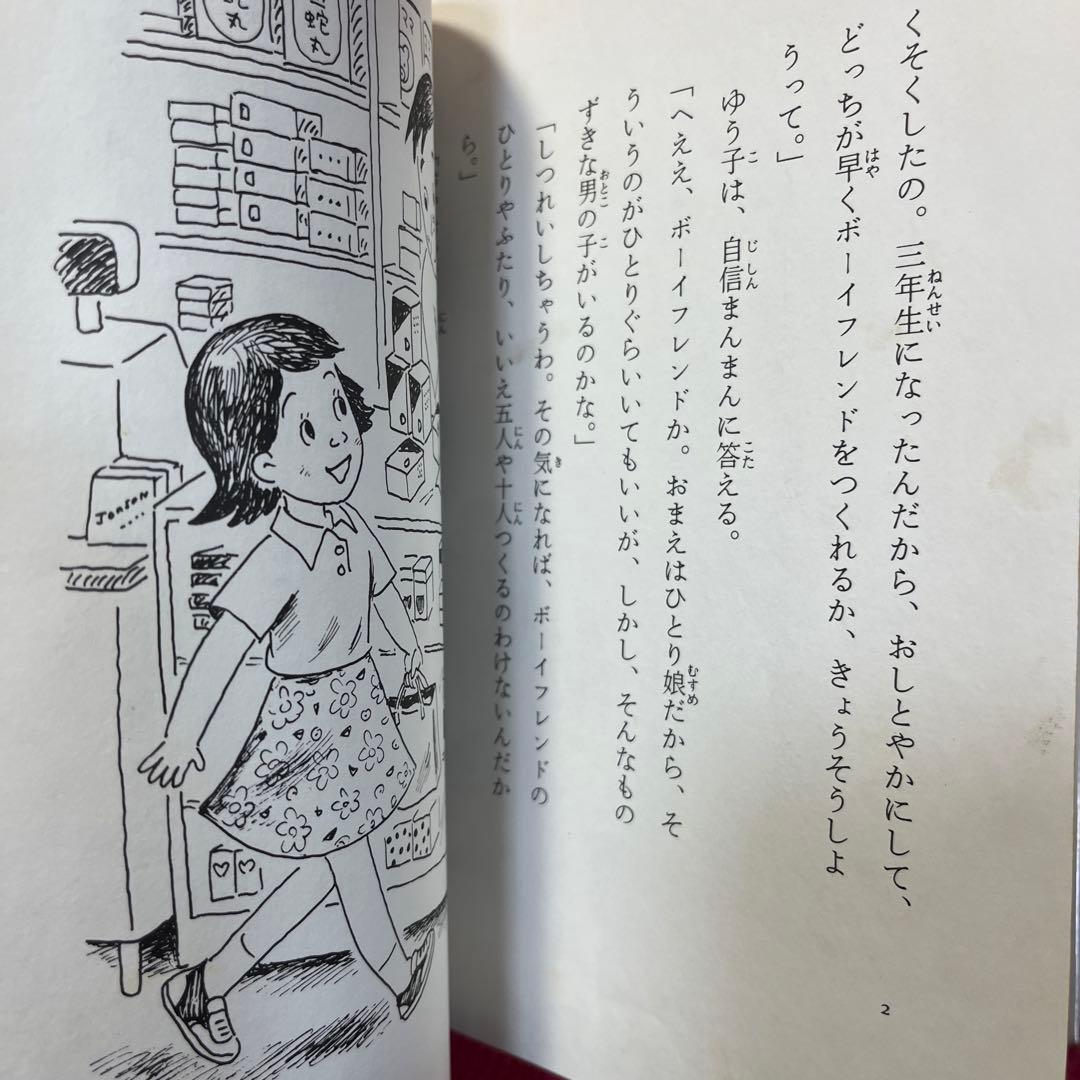 くそくしたの。三年生になったんだから、おしとやかにして、
どっちが早くボーイフレンドをつくれるか、きょうそうしよ
うって。」
ゆう子は、自信まんまんに答える。
「へええ、ボーイフレンドか。おまえはひとり娘だから、そ
ういうのがひとりぐらいいてもいいが、しかし、そんなもの
ずきな男の子がいるのかな。」
「しつれいしちゃうわ。その気になれば、ボーイフレンドの
ひとりやふたり、いいえ五人や十人つくるのわけないんだか
ら。」
2
蛇丸
Jonson